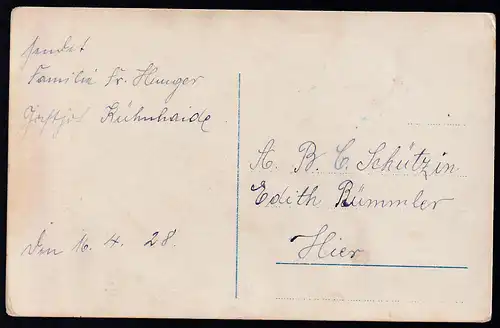 sendet
Familie Fr. Hunger
Kühnhaide
den 16. 4. 28.
A. B. C. Schützin
Edith Rümmler
Hier